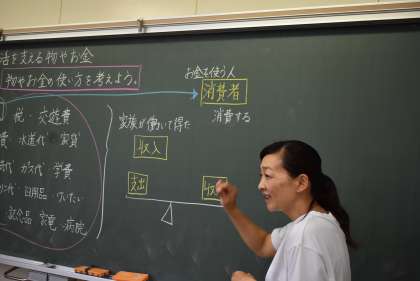 活を支える物やお金
物やお金の使い方を考えよう。
お金を使う人
消費者
消費する
税・交遊費
費 水道代 家賃
代 ガス代 学費
代 日用品
食品 家電 病院
家族が働いて得た
収入
支出
収